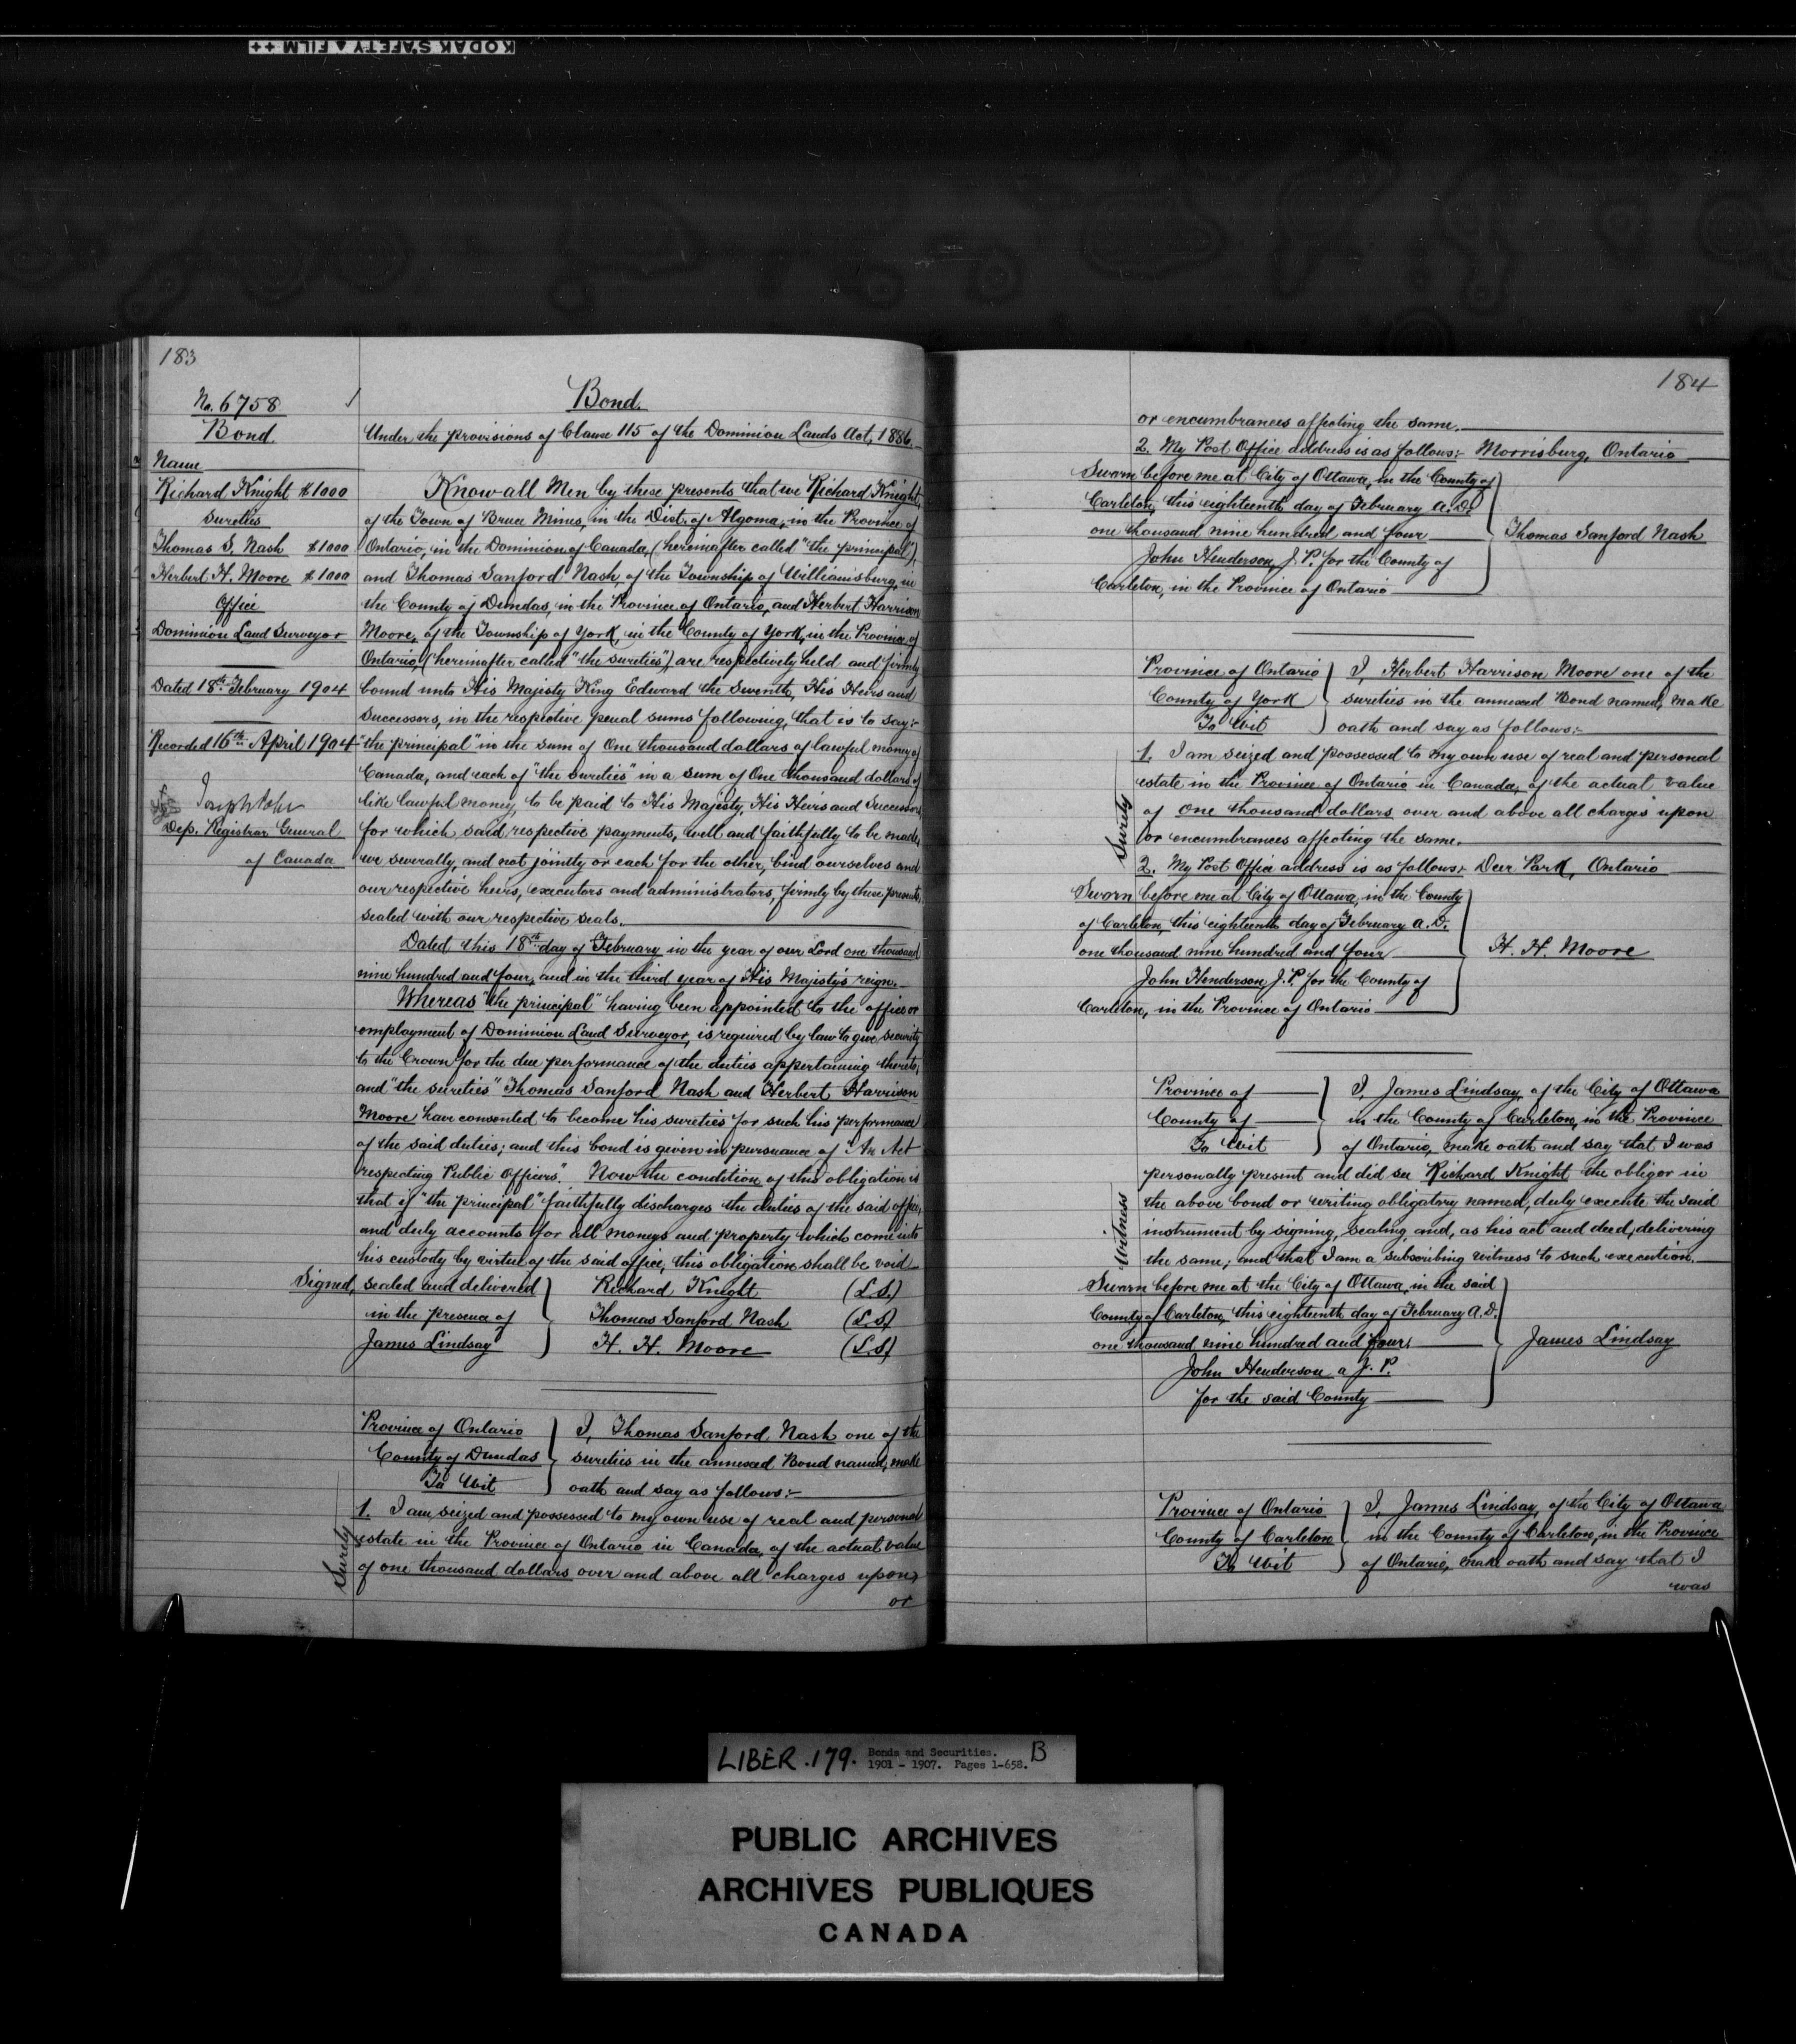 KODAK SAFETY ▲ FILM ++
183
No. 6758
Bond.
Name
Richard Knight $1000
Sureties
Thomas S. Nash $1000
Herbert H. Moore $1000
Office
Dominion Land Surveyor
Dated 18th February 1904
Recorded 16th April 1904
Joseph Pope
Dep. Registrar General
of Canada
Bond.
Under the provisions of Clause 115 of the Dominion Lands Act, 1886.
Know all Men by these presents that we Richard Knight,
of the Town of Bruce Mines, in the Dist. of Algoma, in the Province of
Ontario, in the Dominion of Canada, (hereinafter called "the principal"),
and Thomas Sanford Nash, of the Township of Williamsburg, in
the County of Dundas, in the Province of Ontario, and Herbert Harrison
Moore, of the Township of York, in the County of York, in the Province of
Ontario, (hereinafter called "the sureties") are respectively held and firmly
bound unto His Majesty King Edward the Seventh, His Heirs and
Successors, in the respective penal sums following, that is to say:-
"the principal" in the sum of One thousand dollars of lawful money of
Canada, and each of "the sureties" in a sum of One thousand dollars of
like lawful money, to be paid to His Majesty, His Heirs and Successors
for which said respective payments, well and faithfully to be made,
we severally, and not jointly or each for the other, bind ourselves and
our respective heirs, executors and administrators, firmly by these presents,
sealed with our respective seals.
Dated this 18th day of February in the year of our Lord one thousand
nine hundred and four, and in the third year of His Majesty's reign.
Whereas "the principal" having been appointed to the office or
employment of Dominion Land Surveyor, is required by law to give security
to the Crown for the due performance of the duties appertaining thereto,
and "the sureties" Thomas Sanford Nash and Herbert Harrison
Moore have consented to become his sureties for such his performance
of the said duties; and this bond is given in pursuance of "An Act
respecting Public Officers." Now the condition of this obligation is
that if "the principal" faithfully discharges the duties of the said office,
and duly accounts for all moneys and property which come into
his custody by virtue of the said office, this obligation shall be void
Signed, sealed and delivered } Richard Knight (L.S.)
in the presence of Thomas Sanford Nash (L.S)
James Lindsay H. H. Moore (L.S)
Province of Ontario } I, Thomas Sanford Nash one of the
County of Dundas sureties in the annexed Bond named, make
To Wit oath and say as follows:-
Surety
1. I am seized and possessed to my own use of real and personal
estate in the Province of Ontario in Canada, of the actual value
of one thousand dollars over and above all charges upon,
or
184
or encumbrances affecting the same.
2. My Post Office address is as follows:- Morrisburg, Ontario
Sworn before me at City of Ottawa, in the County of
Carleton, this eighteenth day of February A.D.
one thousand nine hundred and four } Thomas Sanford Nash
John Henderson, J.P. for the County of
Carleton, in the Province of Ontario
Province of Ontario } I, Herbert Harrison Moore one of the
County of York sureties in the annexed Bond named, make
To Wit oath and say as follows:-
Surety
1. I am seized and possessed to my own use of real and personal
estate in the Province of Ontario in Canada, of the actual value
of One thousand dollars over and above all charges upon
or encumbrances affecting the same.
2. My Post Office address is as follows:- Deer Park, Ontario
Sworn before me at City of Ottawa, in the County
of Carleton, this eighteenth day of February A.D.
one thousand nine hundred and four } H. H. Moore
John Henderson, J.P. for the County of
Carleton, in the Province of Ontario
Province of } I, James Lindsay, of the City of Ottawa
County of in the County of Carleton, in the Province
To Wit of Ontario, make oath and say that I was
Witness
personally present and did see Richard Knight the obligor in
the above bond or writing obligatory named, duly execute the said
instrument by signing, sealing, and, as his act and deed, delivering
the same; and that I am a subscribing witness to such execution.
Sworn before me at the City of Ottawa, in the said
County of Carleton, this eighteenth day of February A.D.
one thousand nine hundred and four. } James Lindsay
John Henderson a J.P.
for the said County
Province of Ontario } I, James Lindsay, of the City of Ottawa
County of Carleton in the County of Carleton, in the Province
To Wit of Ontario, make oath and say that I
was
LIBER.179. Bonds and Securities. B
1901 - 1907. Pages 1-658.
PUBLIC ARCHIVES
ARCHIVES PUBLIQUES
CANADA